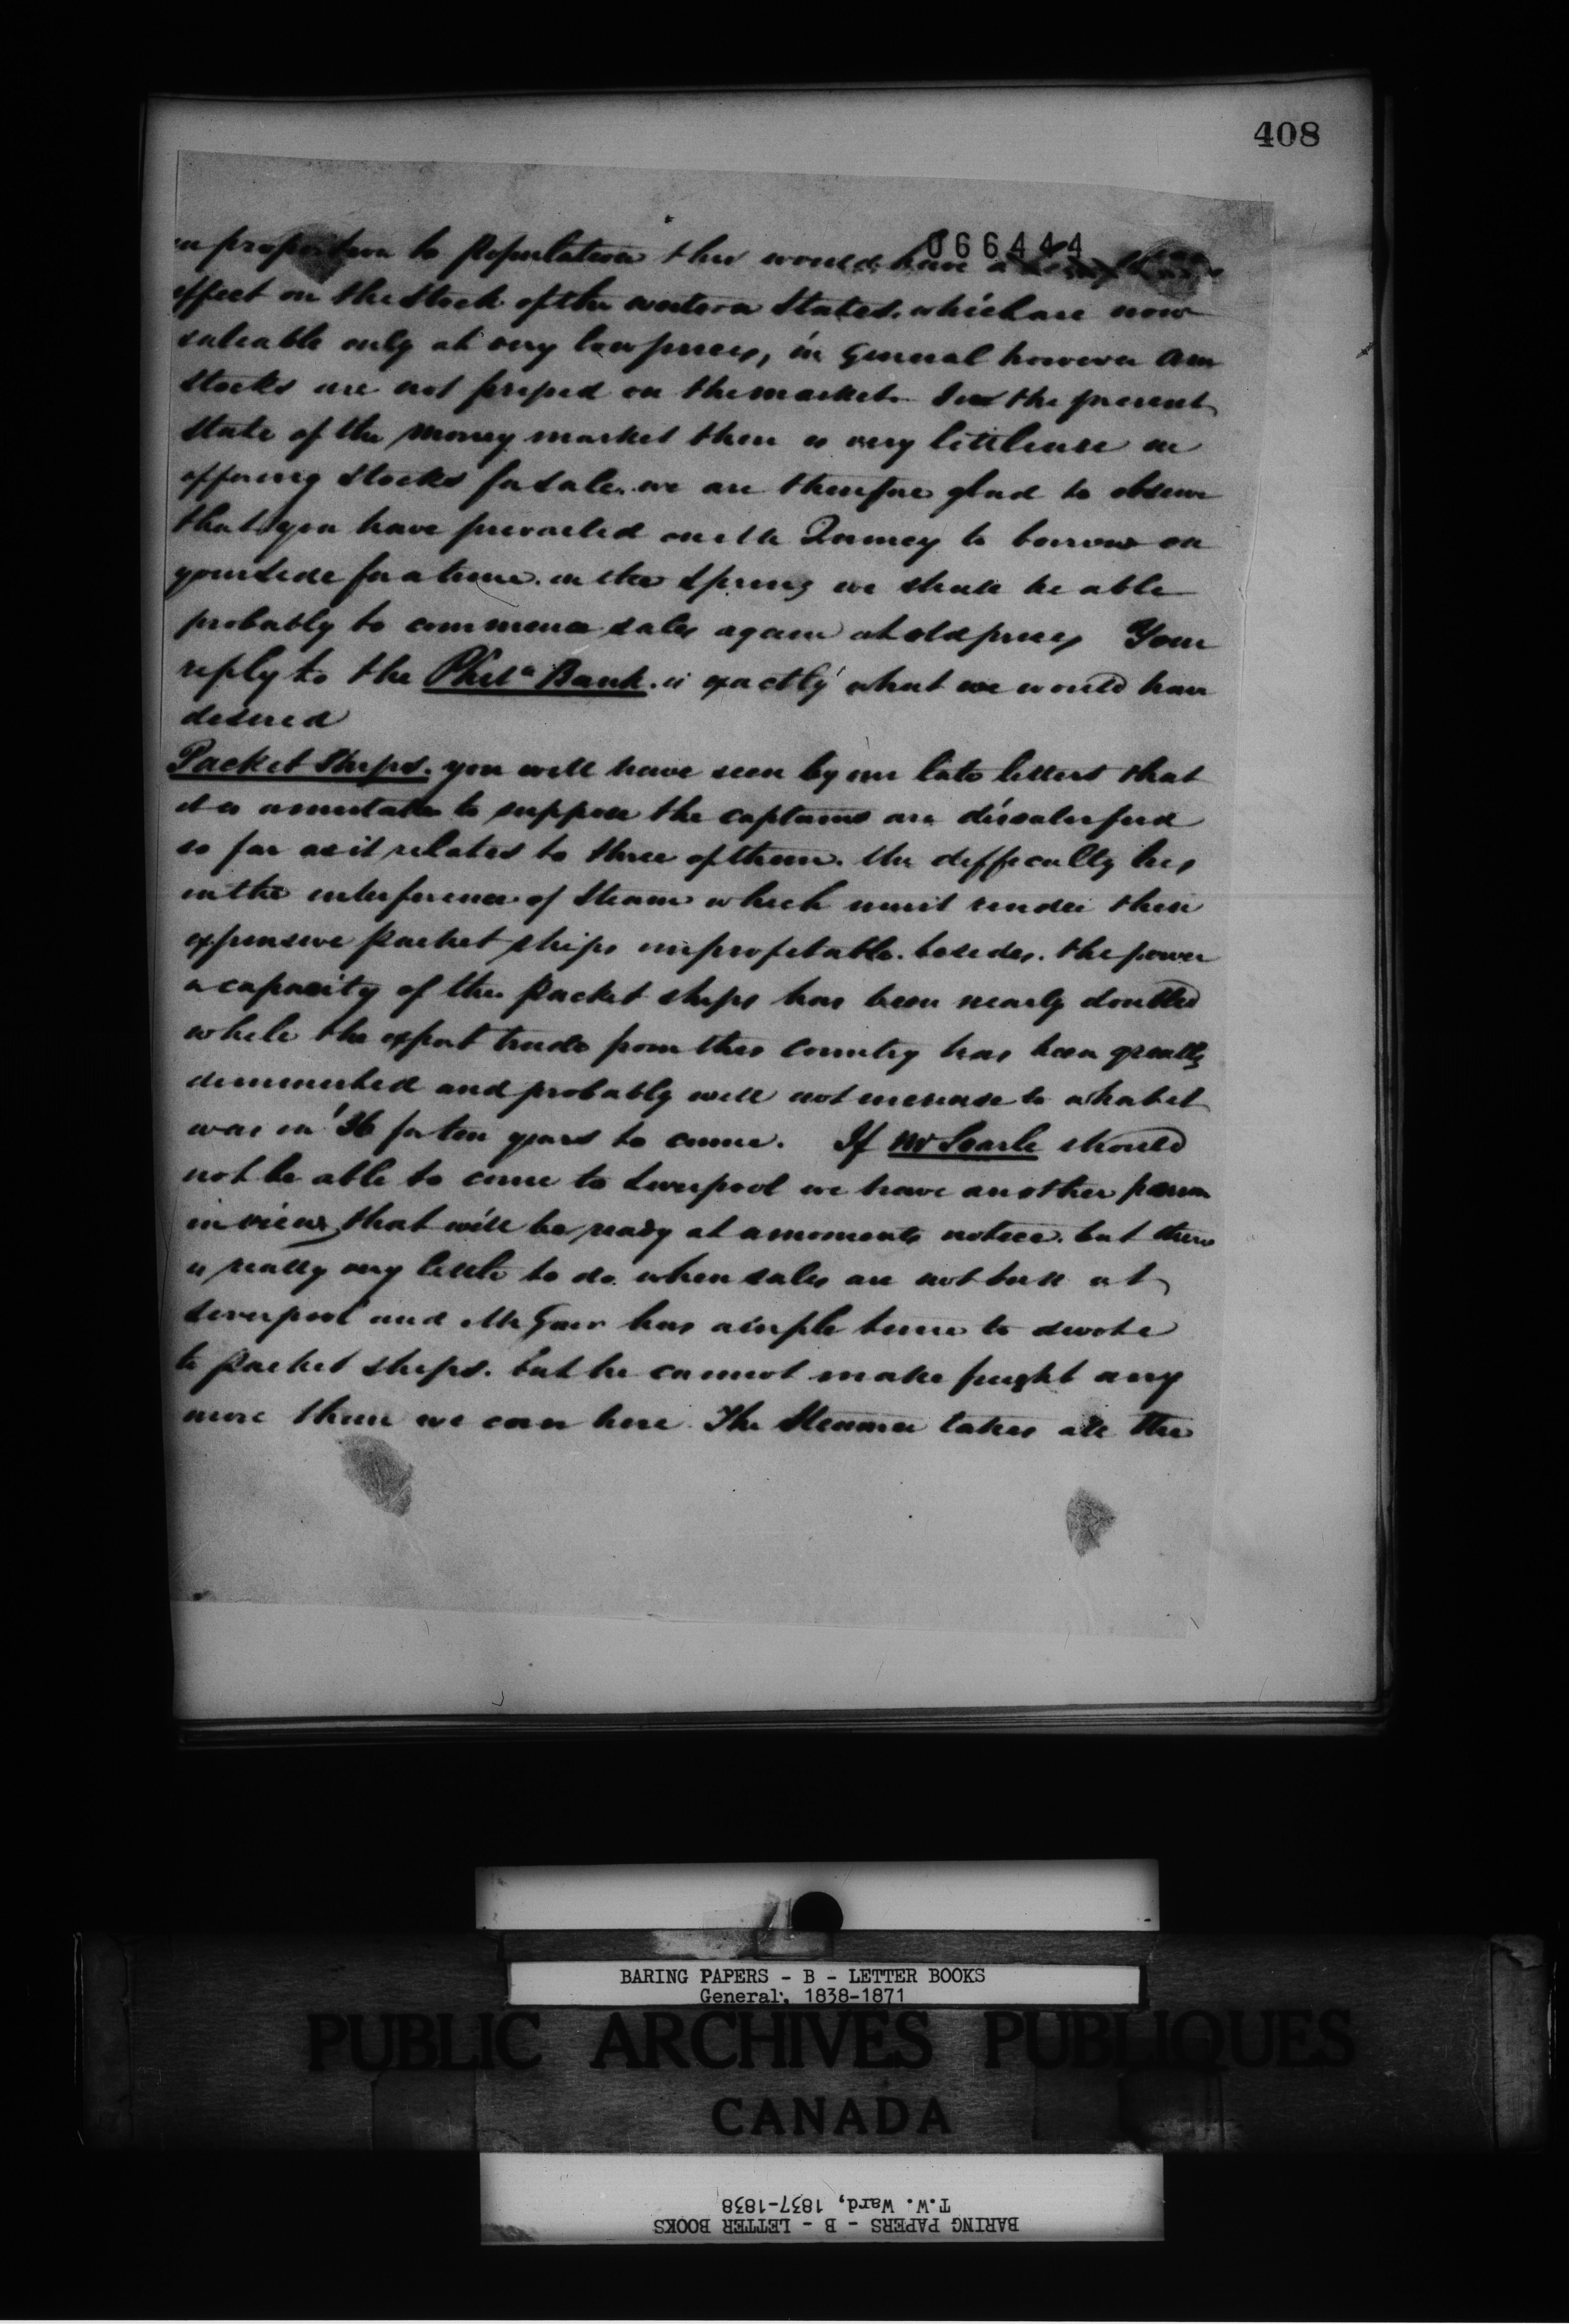 408
066444
in proportion to Population this would have a
effect on the Stock of the western States. which are now
saleable only at very low prices, in general however Am
stocks are not pressed on the market. In the present
state of the money market there is very little use in
offering Stocks for sale. we are therefore glad to observe
that you have prevailed on Mr Quincy to borrow on
your side for a time. in the Spring we shall be able
probably to commence sales again at old prices Your
reply to the Phila Bank. is exactly what we would have
desired
Packet Ships. you will have seen by our late letters that
it is a mistake to suppose the captains are dissatisfied
so far as it relates to three of them. the difficulty lies
in the interference of Steam which must render these
expensive packet ships unprofitable. besides. the power
& capacity of the packet ships has been nearly doubled
while the export trade from this country has been greatly
diminished and probably will not increase to what it
was in '36 for ten years to come. If Mr Searle should
not be able to come to Liverpool we have another person
in view that will be ready at a moments notice. but there
is really very little to do when sales are not brisk at
Liverpool and Mr Gair has ample time to devote
to packet ships. but he cannot make freight any
more than we can here. The Steamer takes all the
BARING PAPERS - B - LETTER BOOKS
General, 1838-1871
PUBLIC ARCHIVES PUBLIQUES
CANADA
BARING PAPERS - B - LETTER BOOKS
T.W. Ward, 1837-1838